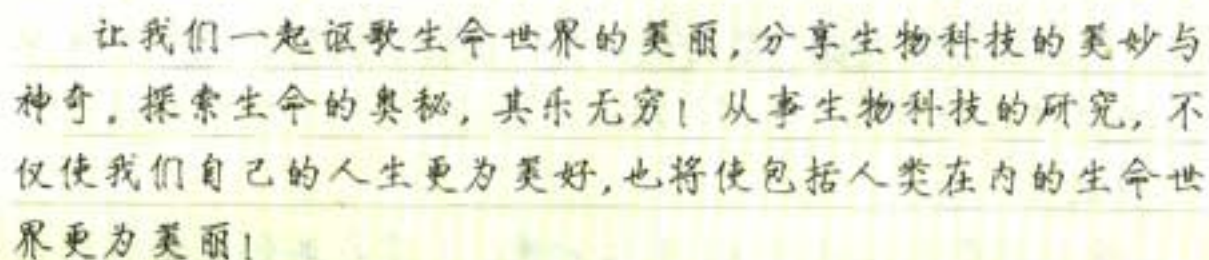 让我们一起讴歌生命世界的美丽,分享生物科技的美妙与
神奇。探索生命的奥秘,其乐无穷!从事生物科技的研究,不
仅使我们自己的人生更为美好,也将使包括人类在内的生命世
界更为美丽!